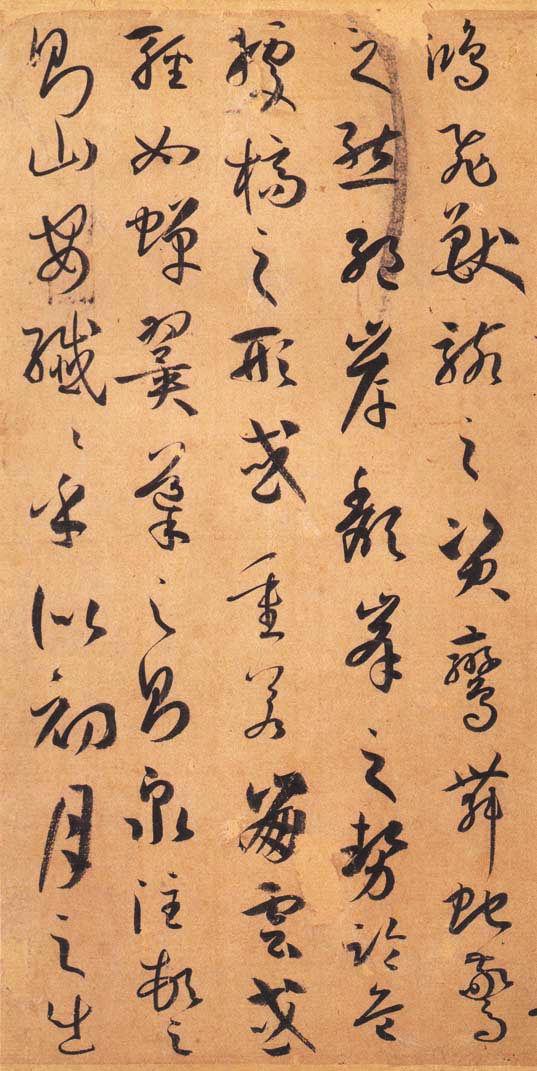 鴻飛獸駭之資鸞舞蛇驚
之態絕岸頹峯之勢臨危
據槁之形或重若崩雲或
輕如蟬翼導之則泉注頓之
則山安纖纖乎似初月之出